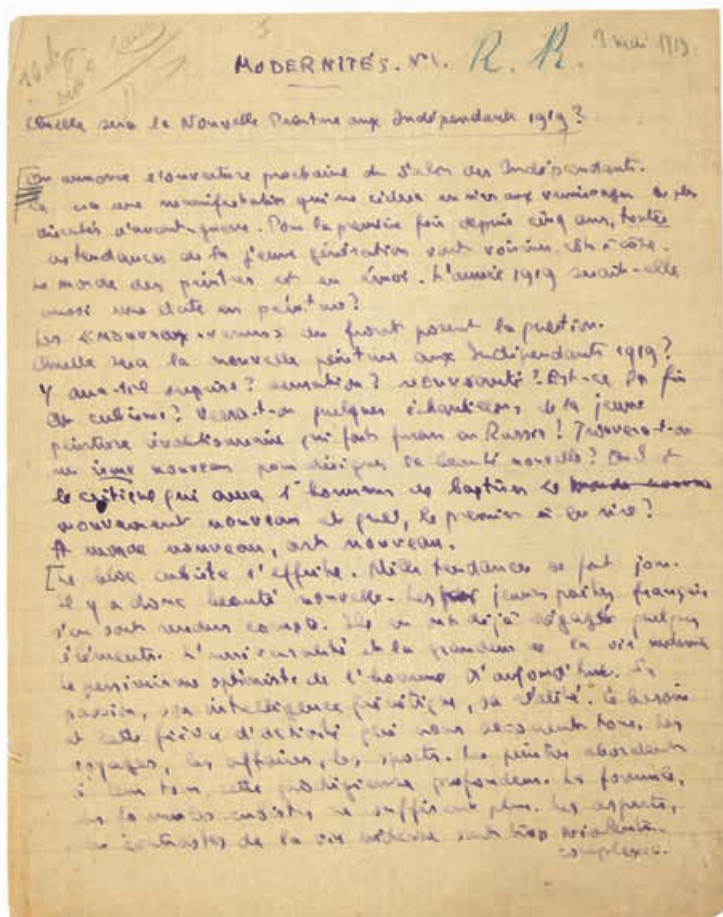 MODERNITÉS. N°1. R. R. 9 mai 1919.
Quelle sera la Nouvelle Peinture aux Indépendants 1919?
On annonce l'ouverture prochaine du Salon des Indépendants.
Ce sera une manifestation qui ne cédera en rien aux vernissages les plus
discutés d'avant-guerre. Pour la première fois depuis cinq ans, toutes
les tendances de la jeune génération vont voisiner côte à côte.
Le monde des peintres est en émoi. L'année 1919 serait-elle
aussi une date en peinture?
Les "nouveaux-venus" du front posent la question.
Quelle sera la nouvelle peinture aux Indépendants 1919?
Y aura-t-il surprise? sensation? nouveauté? Est-ce la fin
du cubisme? Verra-t-on quelques échantillons de la jeune
peinture évolutionnaire qui fait fureur en Russie! Trouvera-t-on
un isme nouveau pour désigner la beauté nouvelle? Quel est
le critique qui aura l'honneur de baptiser le
mouvement nouveau et quel, le premier à en rire?
A monde nouveau, art nouveau.
Le bloc cubiste s'effrite. Mille tendances se font jour.
Il y a donc beauté nouvelle. Les jeunes poètes français
s'en sont rendus compte. Ils en ont déjà dégagé quelques
éléments. L'universalité et la grandeur de la vie moderne
le pessimisme optimiste de l'homme d'aujourd'hui. Sa
passion, son intelligence frénétique, sa vitalité. Ce besoin
et cette fièvre d'activité qui nous secouent tous. Les
voyages, les affaires, les sports. Les peintres abordent
à leur tour cette prodigieuse profondeur. La formule,
les formules cubistes ne suffisent plus. Les aspects,
les contrastes de la vie moderne sont trop violents.
complexes.